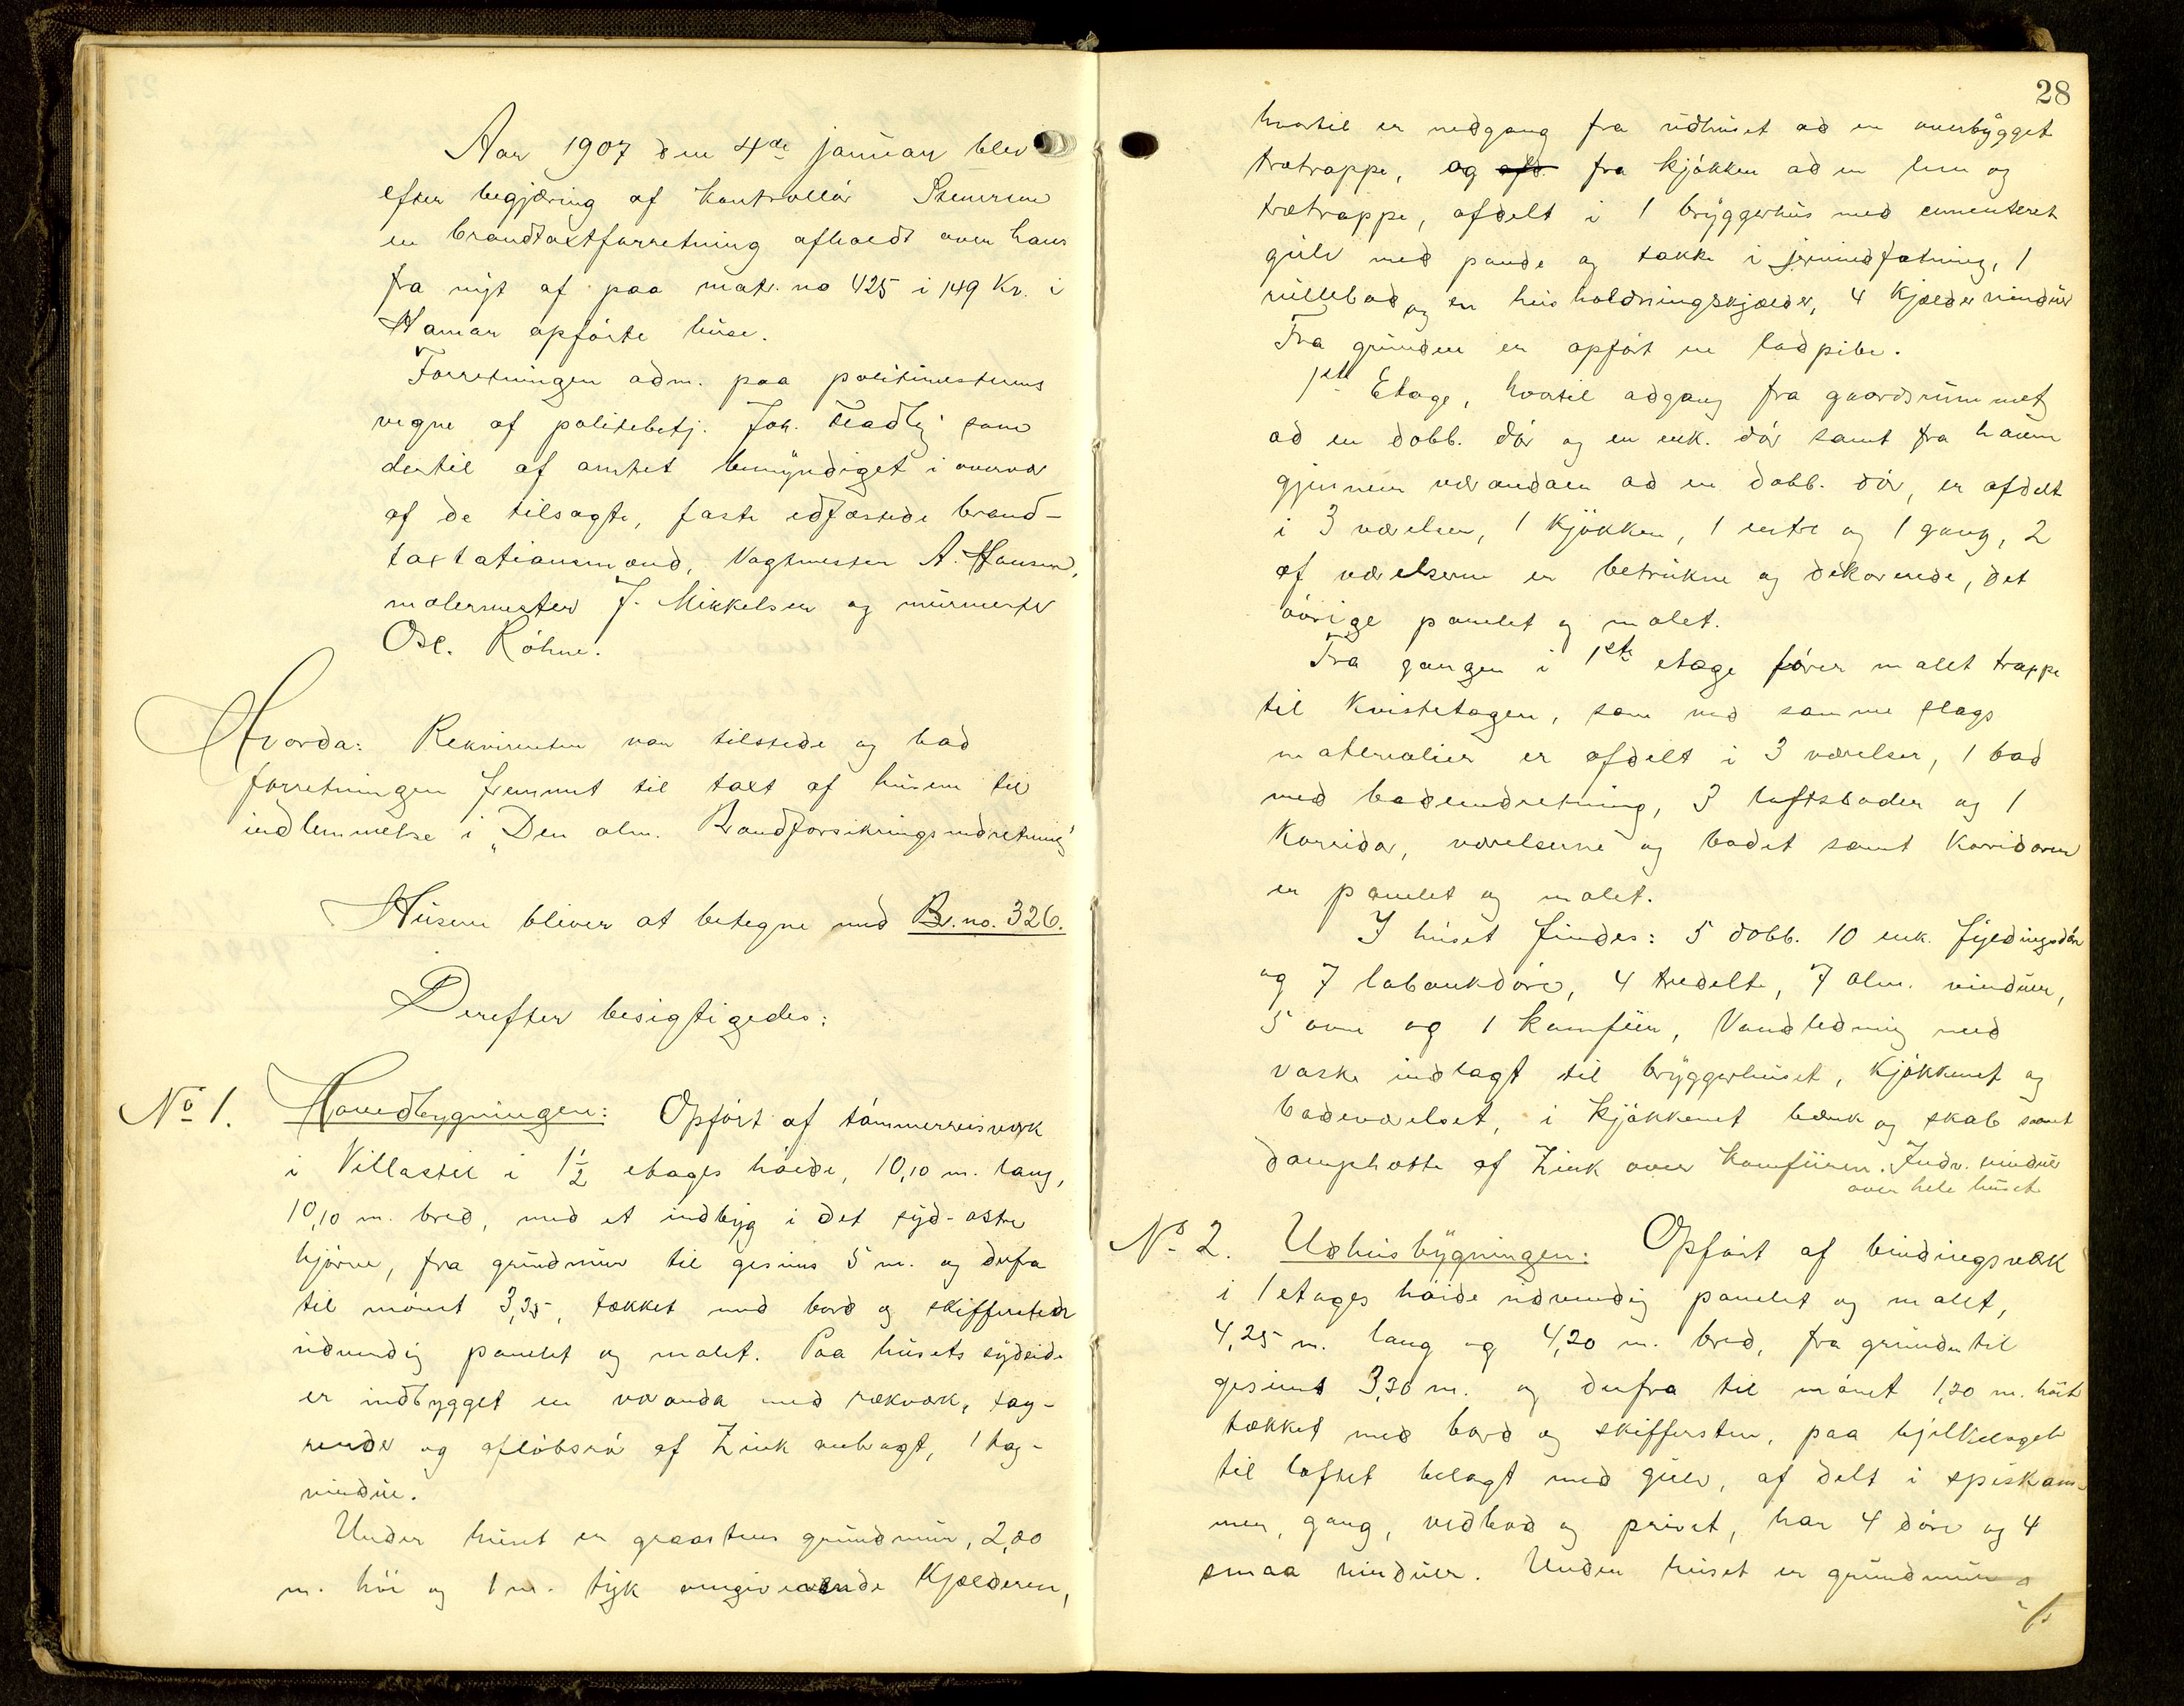 Aar 1907 den 4de januar blev
efter begjæring af kontrollør
en brandtaxtforretning afholdt over hans
fra nyt af paa matr. no 425 i 149 Kv. i
Hamar opførte huse.
Forretningen adm. paa politimesterens
vegne af politibetj. Joh. som
dertil af amtet bemyndiget i overvær
af de tilsagte, faste edfæstede brand-
taxtationsmænd, Vagtmester A. Hansen,
malermester J. Mikkelsen og murmester
Osc. Røhne.
Hvorda: Rekvirenten var tilstede og bad
forretningen fremmet til taxt af husene til
indlemmelse i "Den alm. Brandforsikringsindretning"
Husene bliver at betegne med Br. no. 326.
Derefter besigtigedes:
No 1. Hovedbygningen: Opført af tømmerreisværk
i Villastil i 1½ etages høide, 10,10 m. lang,
10,10 m. bred, med et indbyg i det syd-østre
hjørne, fra grundmur til gesims 5 m. og derfra
til mønet 3,35, tækket med bord og skiffersten
udvendig panelet og malet. Paa husets sydside
er indbygget en veranda med rækværk, tag-
render og afløbsrør af Zink anbragt, 1 tag-
vindue.
Under huset er graastens grundmur, 2,00
m. høi og 1 m. tyk omgivende Kjælderen,
28
hvortil er nedgang fra udhuset ad en overbygget
trætrappe, og afd fra kjøkken ad en lem og
trætrappe, afdelt i 1 bryggerhus med cementeret
gulv med pande og takke i jernindfatning, 1
rullebod og en husholdningskjælder, 4 kjældervinduer
Fra grunden er opført en lodpibe.
1ste Etage, hvortil adgang fra gaardsrummet
ad en dobb. dør og en enk. dør samt fra haven
gjennem verandaen ad en dobb. dør, er afdelt
i 3 værelser, 1 kjøkken, 1 entre og 1 gang, 2
af værelserne er betrukne og dekorerede, det
øvrige panelet og malet.
Fra gangen i 1ste etage fører malet trappe
til Kvistetagen, som med samme slags
materialier er afdelt i 3 værelser, 1 bad
med badeindretning, 3 loftsboder og 1
Korridor, værelserne og badet samt Korridoren
er panelet og malet.
I huset findes: 5 dobb. 10 enk. fyldingsdøre
og 7 labankdøre, 4 tredelte, 7 alm. vinduer,
5 ovne og 1 komfur, Vandledning med
vaske indlagt til bryggerhuset, kjøkkenet og
badeværelset, i kjøkkenet bænk og skab samt
damphætte af Zink over komfuren. Indv. vinduer
over hele huset
No 2. Udhusbygningen: Opført af bindingsværk
i 1 etages høide udvendig panelet og malet,
4,25 m. lang og 4,20 m. bred, fra grunden til
gesims 3,30 m. og derfra til mønet 1,20 m. høit
tækket med bord og skiffersten, paa bjelkelaget
til loftet belagt med gulv, afdelt i spiskam-
mer, gang, vedbod og privet, har 4 døre og 4
smaa vinduer. Under huset er grundmur